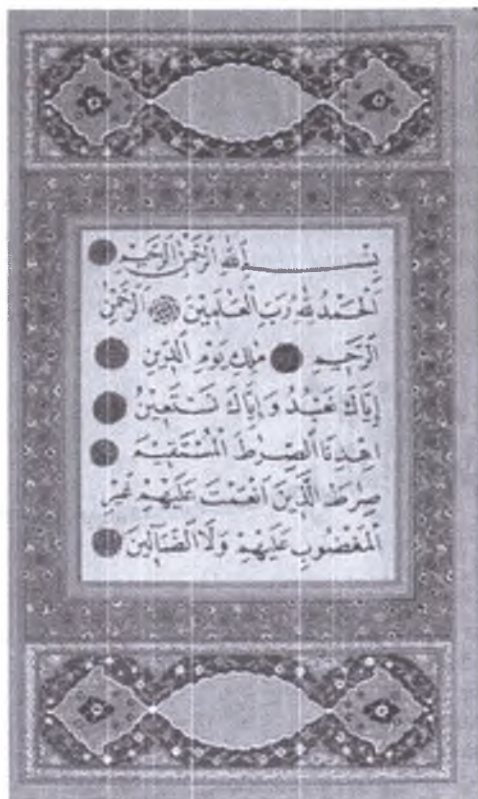 بِسْـــــمِ اللهِ الرَّحْمٰنِ الرَّحِيمِ
اَلْحَمْدُ لِلّٰهِ رَبِّ الْعٰلَمِينَ الرَّحْمٰنِ
الرَّحِيمِ مٰلِكِ يَوْمِ الدِّينِ
اِيَّاكَ نَعْبُدُ وَاِيَّاكَ نَسْتَعِينُ
اِهْدِنَا الصِّرٰطَ الْمُسْتَقِيمَ
صِرٰطَ الَّذِينَ اَنْعَمْتَ عَلَيْهِمْ غَيْرِ
الْمَغْضُوبِ عَلَيْهِمْ وَلَا الضَّالِّينَ